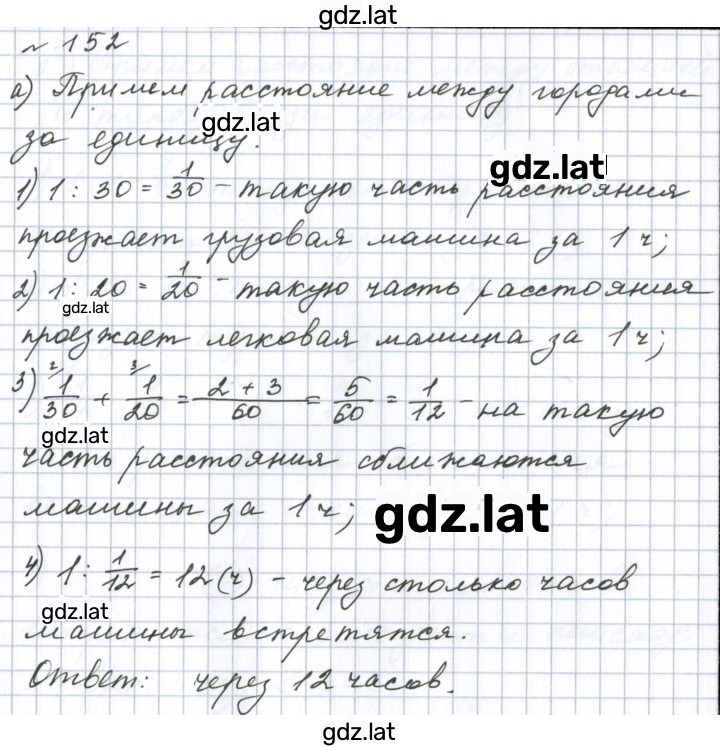 gdz.lat
№ 152
а) Примем расстояние между городами
gdz.lat
за единицу.
gdz.lat
1) 1 : 30 = 1/30 - такую часть расстояния
проезжает грузовая машина за 1 ч;
2) 1 : 20 = 1/20 - такую часть расстояния
gdz.lat
проезжает легковая машина за 1 ч;
3) ²⁄1/30 + ³⁄1/20 = 2 + 3/60 = 5/60 = 1/12 - на такую
gdz.lat
часть расстояния сближаются
машины за 1 ч;
gdz.lat
4) 1 : 1/12 = 12 (ч) - через столько часов
gdz.lat
машины встретятся.
Ответ: через 12 часов.
gdz.lat
gdz.lat